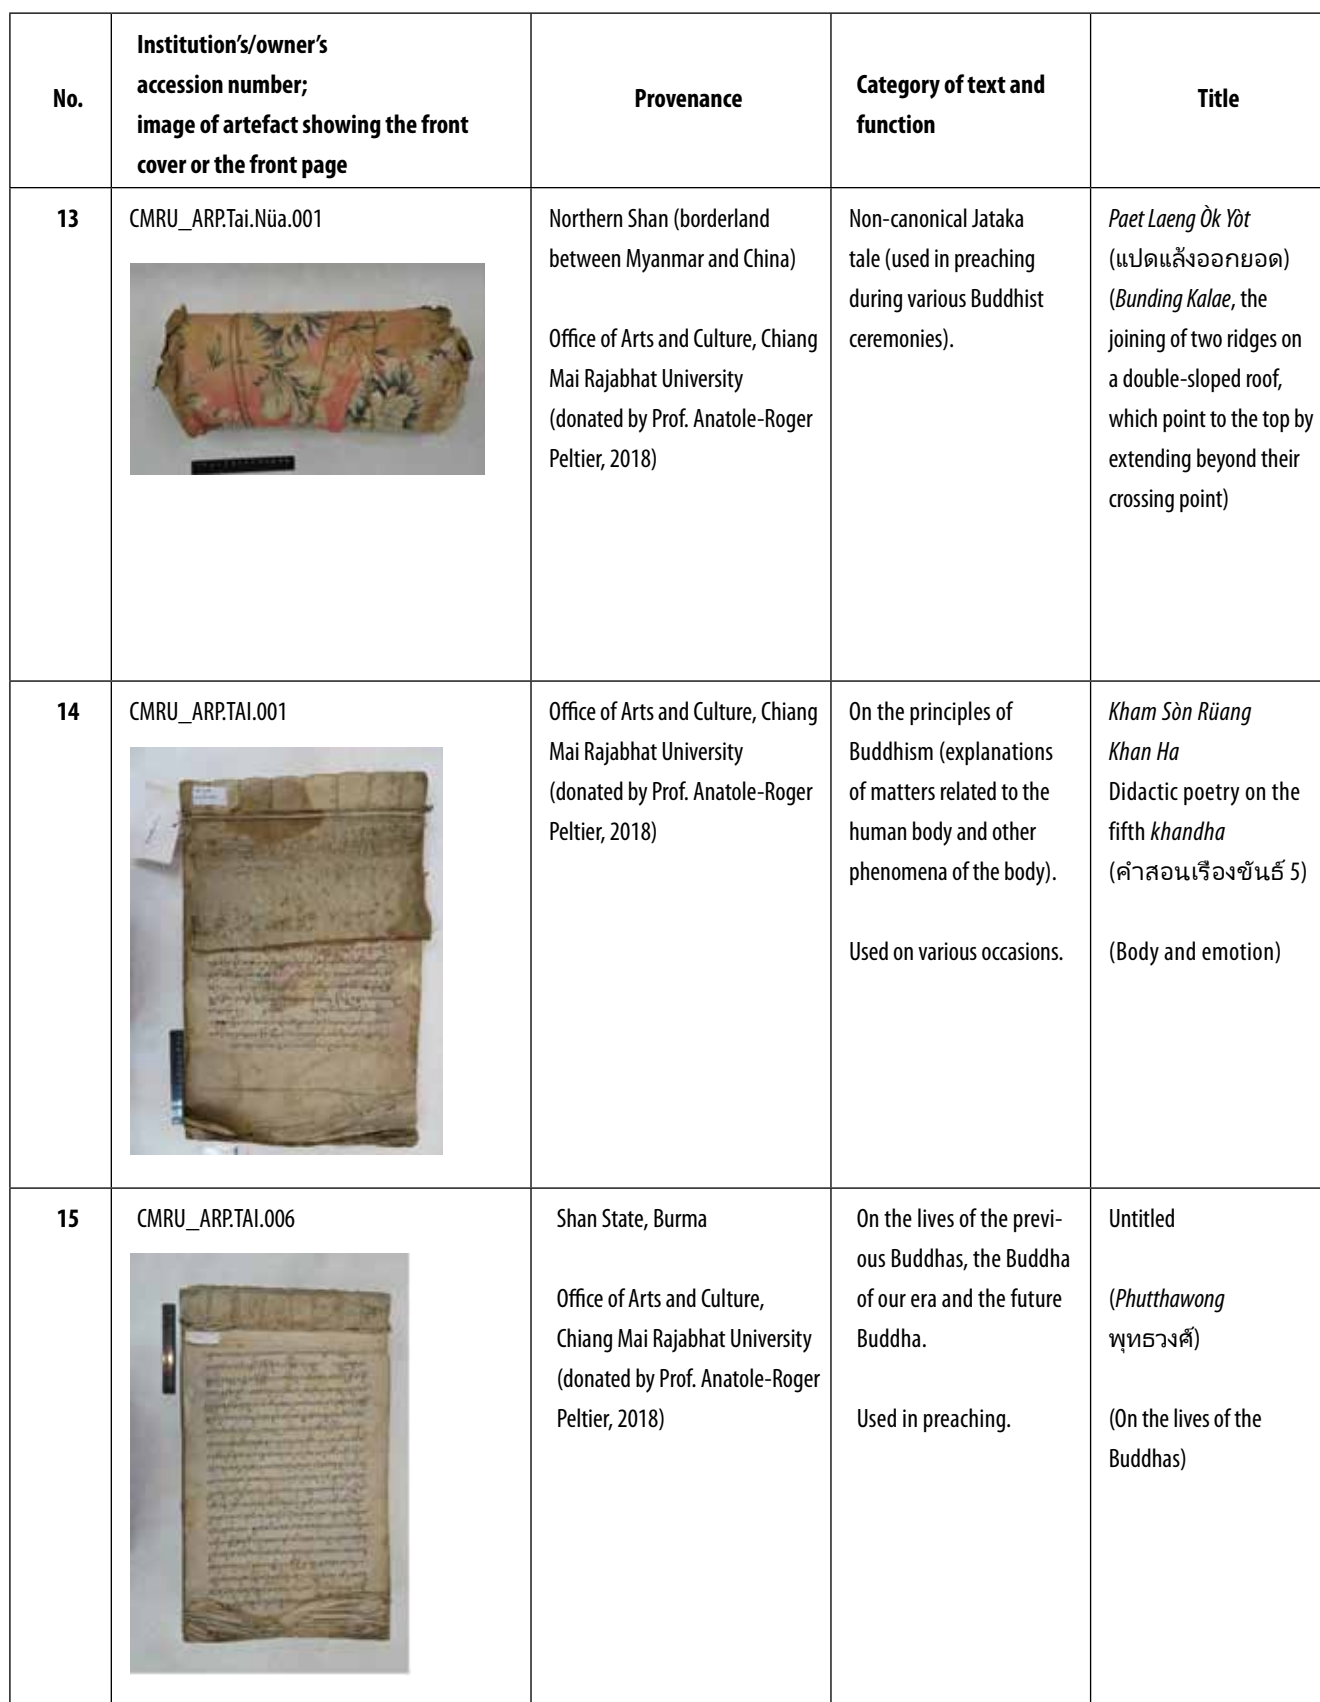 No.
Institution's/owner's
accession number;
image of artefact showing the front
cover or the front page
Provenance
Category of text and
function
Title
13
CMRU_ARP.Tai.Nüa.001
Northern Shan (borderland
between Myanmar and China)
Office of Arts and Culture, Chiang
Mai Rajabhat University
(donated by Prof. Anatole-Roger
Peltier, 2018)
Non-canonical Jataka
tale (used in preaching
during various Buddhist
ceremonies).
Paet Laeng Òk Yòt
(แปดแล้งออกยอด)
(Bunding Kalae, the
joining of two ridges on
a double-sloped roof,
which point to the top by
extending beyond their
crossing point)
14
CMRU_ARP.TAI.001
Office of Arts and Culture, Chiang
Mai Rajabhat University
(donated by Prof. Anatole-Roger
Peltier, 2018)
On the principles of
Buddhism (explanations
of matters related to the
human body and other
phenomena of the body).
Used on various occasions.
Kham Sòn Rüang
Khan Ha
Didactic poetry on the
fifth khandha
(คำสอนเรืองขันธ์ 5)
(Body and emotion)
15
CMRU_ARP.TAI.006
Shan State, Burma
Office of Arts and Culture,
Chiang Mai Rajabhat University
(donated by Prof. Anatole-Roger
Peltier, 2018)
On the lives of the previ-
ous Buddhas, the Buddha
of our era and the future
Buddha.
Used in preaching.
Untitled
(Phutthawong
พุทธวงศ์)
(On the lives of the
Buddhas)